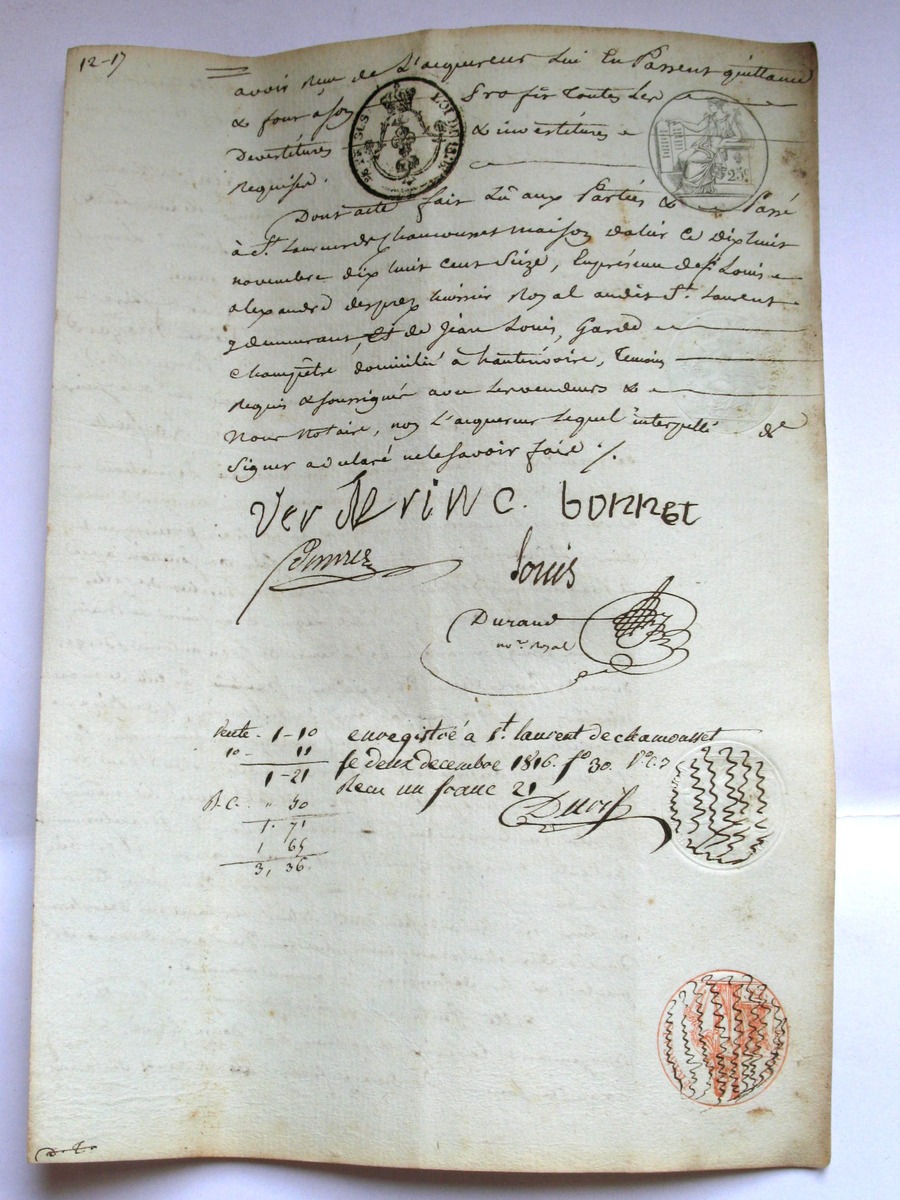 12-17
avoir reçu de L'acquereur Lui En Passent quittance
& pour à son Profit Toutes Les
Devestitures & investitures
Requises.
Dont acte fait Lû aux Parties & Passé
à St. Laurent de Chamousset maison dalier ce dix huit
novembre dix huit cent Seize, En présence de Sr. Louis
alexandre desprez huissier Royal audit St. Laurent
y demeurant, Et de Jean Louis, Garde
Champêtre domicilié à hauterivoire, Temoins
Requis & soussignés avec Les vendeurs &
Nous Notaire, non L'acquereur Lequel interpellé de
Signer a declaré ne le savoir faire ./.
bonnet
Louis
Durand
nore. Royal
Vente - 1-10 enregistré à St. laurent de chamousset
10 - 11 le deux decembre 1816. fo 30.
1-21 Recu un franc 21
50
1. 71
1 65
3, 36.
25c